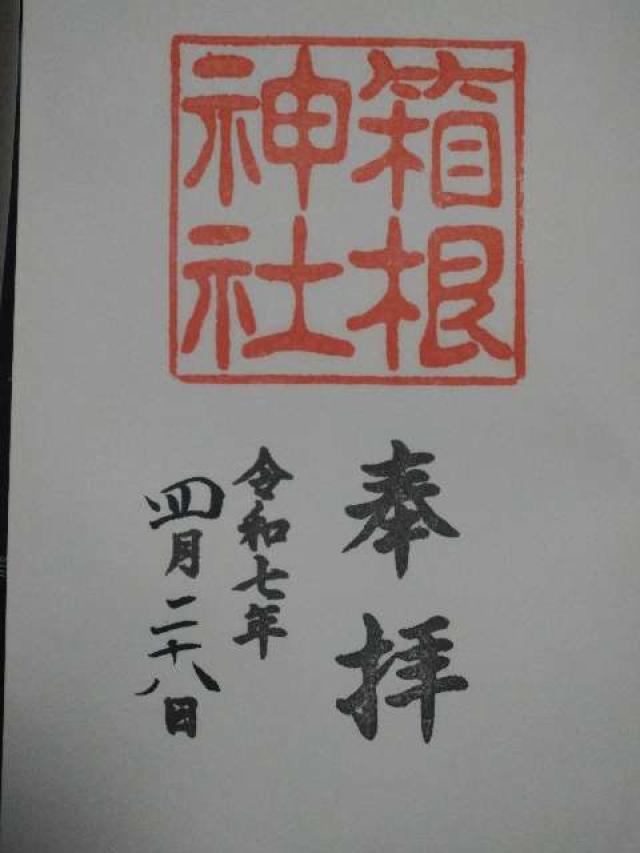 箱根
神社
奉拝
令和七年
四月二十八日